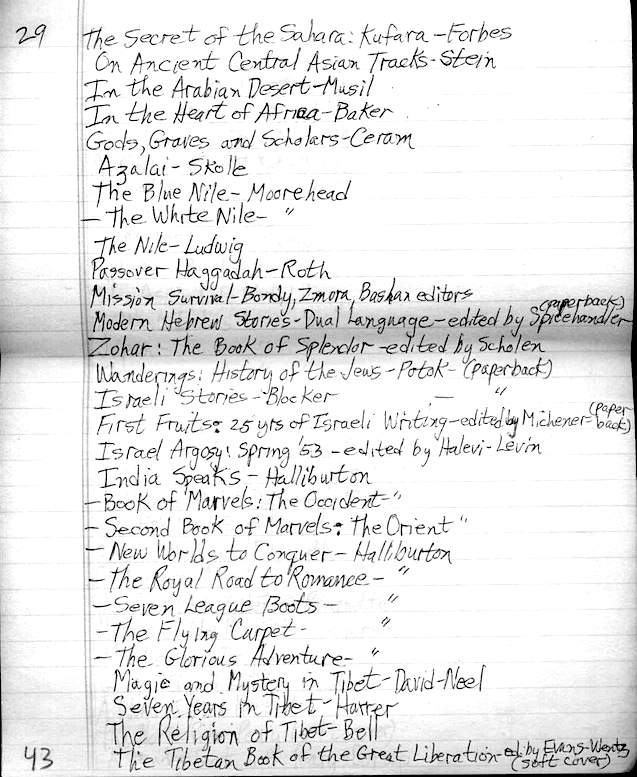 29 The Secret of the Sahara: Kufara-Forbes
On Ancient Central Asian Tracks-Stein
In the Arabian Desert-Musil
In the Heart of Africa-Baker
Gods, Graves and Scholars-Ceram
Azalai-Skolle
The Blue Nile-Moorehead
- The White Nile- "
The Nile-Ludwig
Passover Haggadah-Roth
Mission Survival-Bondy, Zmora, Bashan editors
Modern Hebrew Stories-Dual Language-edited by Spicehandler (paperback)
Zohar: The Book of Splendor-edited by Scholen
Wanderings: History of the Jews-Potok-(paperback)
Israeli Stories-Blocker - "
First Fruits: 25 yrs of Israeli Writing-edited by Michener-(paperback)
Israel Argosy: Spring '53-edited by Halevi-Levin
India Speaks-Halliburton
- Book of Marvels: The Occident-"
- Second Book of Marvels: The Orient "
- New Worlds to Conquer-Halliburton
- The Royal Road to Romance- "
- Seven League Boots- "
- The Flying Carpet- "
- The Glorious Adventure- "
Magic and Mystery in Tibet-David-Neel
Seven Years in Tibet-Harrer
The Religion of Tibet-Bell
43 The Tibetan Book of the Great Liberation-ed. by Evans-Wentz (soft cover)